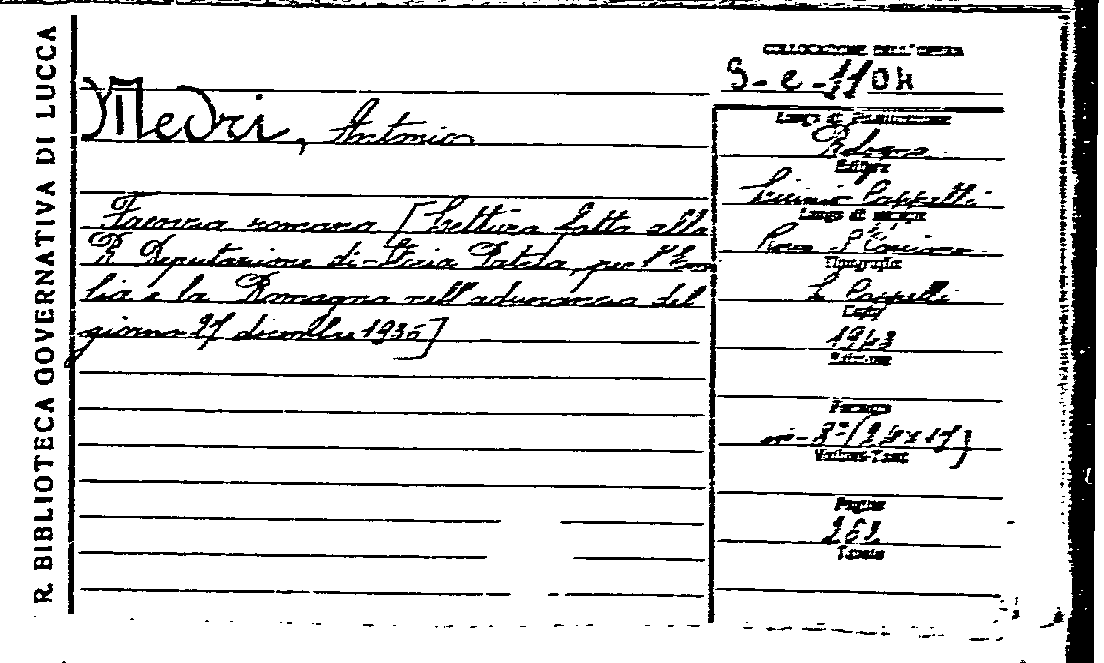 R. BIBLIOTECA GOVERNATIVA DI LUCCA
COLLOCAZIONE DELL'OPERA
9-e-1104
Medri, Antonio
Faenza romana [Lettura fatta alla
R Deputazione di Storia Patria, per l'Emi
lia e la Romagna nell'adunanza del
giorno 27 dicembre 1935]
Luogo di Pubblicazione
Bologna
Editore
Licinio Cappelli
Luogo di stampa
Rocca S. Casciano
Tipografia
L. Cappelli
Data
1943
Edizione
Formato
in-8° (24x17)
Pagine
262
Tavole